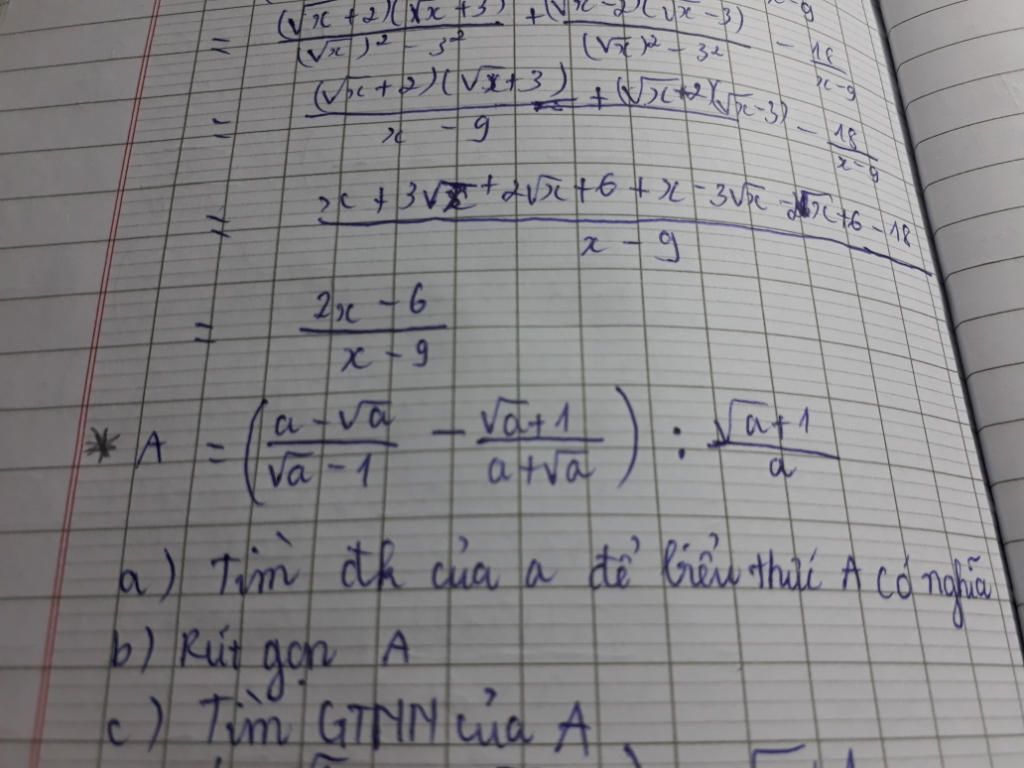 = ((√x+2)(√x+3))/((√x)² - 3²) + ((√x-2)(√x-3))/((√x)² - 3²) - 18/(x-9)
= ((√x+2)(√x+3) + (√x+2)(√x-3))/(x - 9) - 18/(x-9)
= (x + 3√x + 2√x + 6 + x - 3√x - 2√x + 6 - 18)/(x - 9)
= (2x - 6)/(x - 9)
* A = ((a - √a)/(√a - 1) - (√a + 1)/(a + √a)) : (√a + 1)/a
a) Tìm đk của a để biểu thức A có nghĩa
b) Rút gọn A
c) Tìm GTNN của A